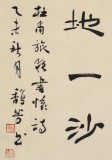 地一沙
杜甫旅夜書懷詩
乙未秋月 書